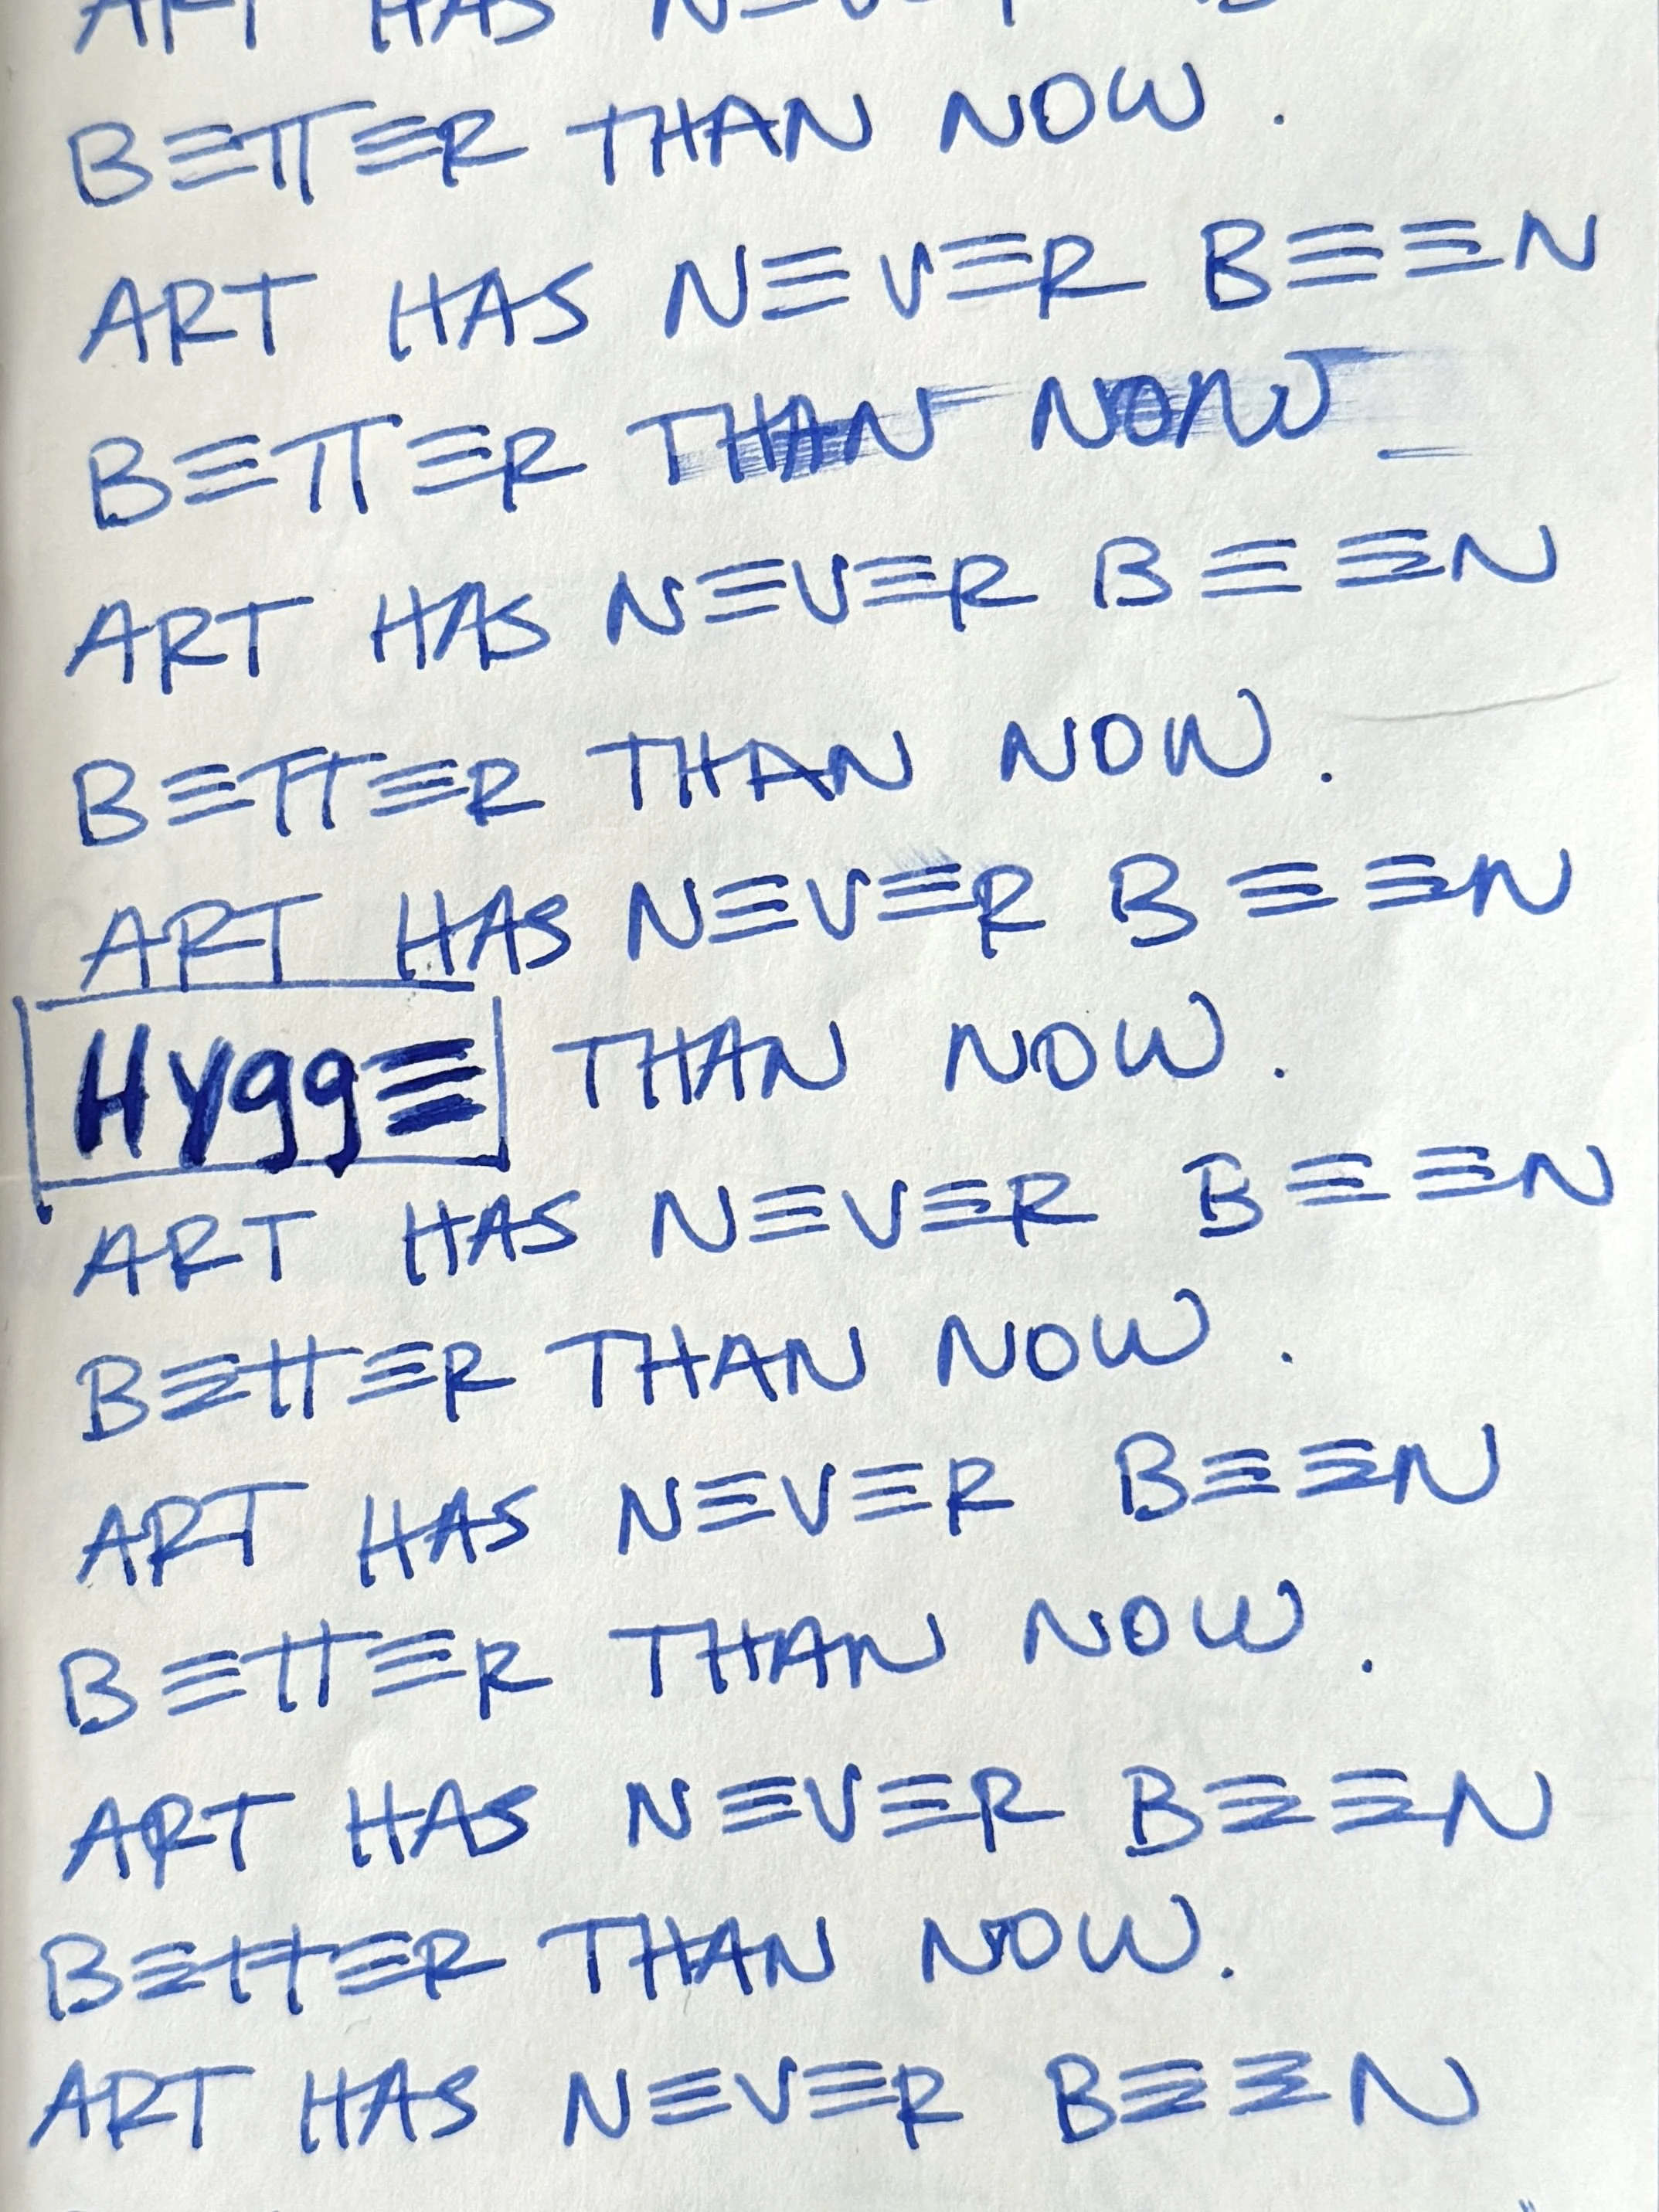 ART HAS
BETTER THAN NOW.
ART HAS NEVER BEEN
BETTER THAN NOW
ART HAS NEVER BEEN
BETTER THAN NOW.
ART HAS NEVER BEEN
Hygge THAN NOW.
ART HAS NEVER BEEN
BETTER THAN NOW.
ART HAS NEVER BEEN
BETTER THAN NOW.
ART HAS NEVER BEEN
BETTER THAN NOW.
ART HAS NEVER BEEN